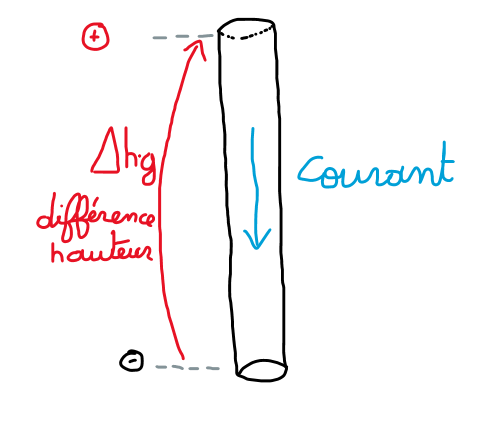 +
Δh·g
différence
hauteur
Courant
-